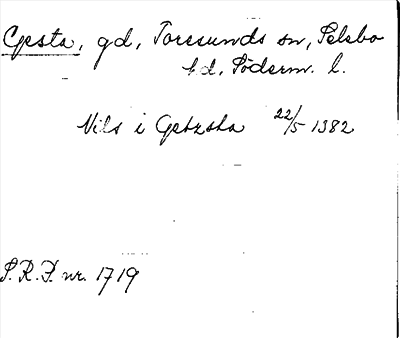 Gesta, gd, Toresunds sn, Selebo
hd, Söderm. l.
Nils i Getzsta 22/5 1382
S.R.P. nr. 1719